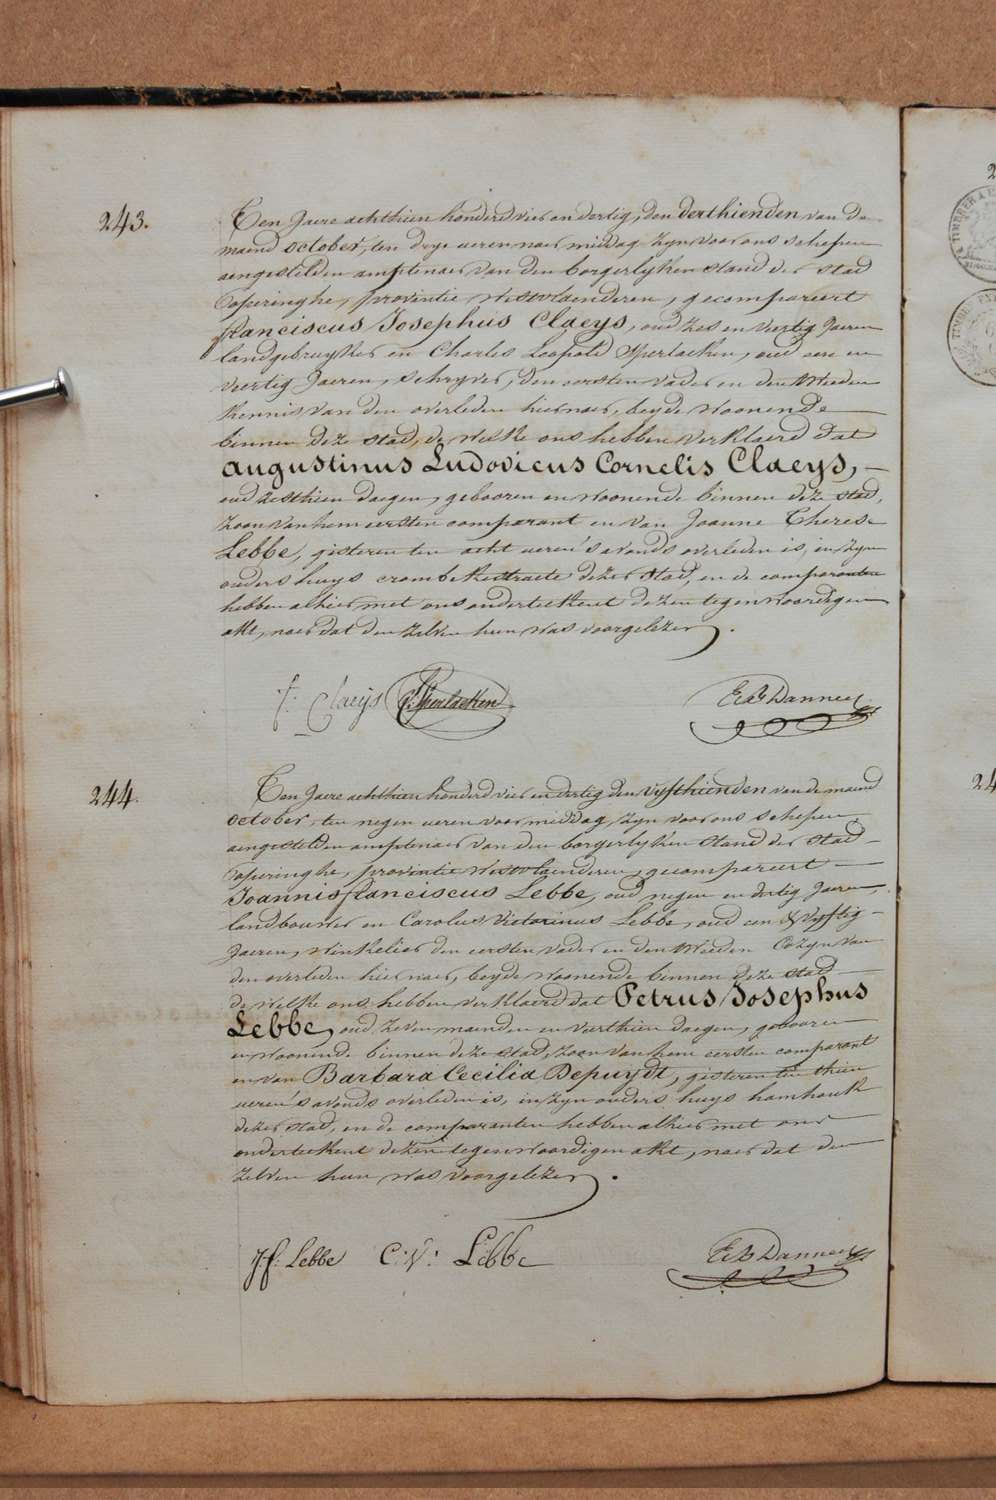 243.
Ten Jaere achthien honderd vier en dertig, den derthienden van de
maend october, ten drye ueren naer middag, zyn voor ons schepen
aengestelden amptenaer van den borgerlyken stand der stad
Poperinghe, provintie Westvlaenderen, gecompareert
franciscus Josephus Claeys, oud zes en veertig Jaeren
landgebruyker en Charles Leopold Sperlaeken, oud een en
veertig Jaeren, schryver, den eersten vader en den tweeden
kennis van den overleden hiernaer, beyde woonende
binnen deze stad, de welke ons hebben verklaerd dat
augustinus Ludovicus Cornelis Claeys,
oud zesthien daegen, gebooren en woonende binnen deze stad,
zoon van hem eersten comparant en van Joanne Therese
Lebbe, gisteren ten acht ueren 's avonds overleden is, in zyn
ouders huys crombekestraete dezer stad, en de comparanten
hebben alhier met ons onderteekent dezen tegenwoordigen
akt, naer dat den zelven hun was voorgelezen.
f: Claeys C: Sperlaeken Ed: Danneel
244.
Ten Jaere achthien honderd vier en dertig den vyfthienden van de maend
october, ten negen ueren voor middag, zyn voor ons schepen,
aengestelden amptenaer van den borgerlyken stand der stad
Poperinghe, provintie Westvlaenderen, gecompareert
Joannis franciscus Lebbe, oud negen en dertig Jaeren,
landbouwer en Carolus Victorinus Lebbe, oud een & vyftig
Jaeren, winkelier den eersten vader en den tweeden Cozyn van
den overleden hiernaer, beyde woonende binnen deze stad
de welke ons hebben verklaerd dat Petrus Josephus
Lebbe, oud zeven maenden en veerthien daegen, gebooren
en woonende binnen deze stad, zoon van hem eersten comparant
en van Barbara Cecilia Depuydt, gisteren ten thien
ueren 's avonds overleden is, in zyn ouders huys hamhouk
dezer stad, en de comparanten hebben alhier met ons
onderteekent dezen tegenwoordigen akt, naer dat den
zelven hun was voorgelezen.
J: f: Lebbe C: V: Lebbe Ed: Danneel